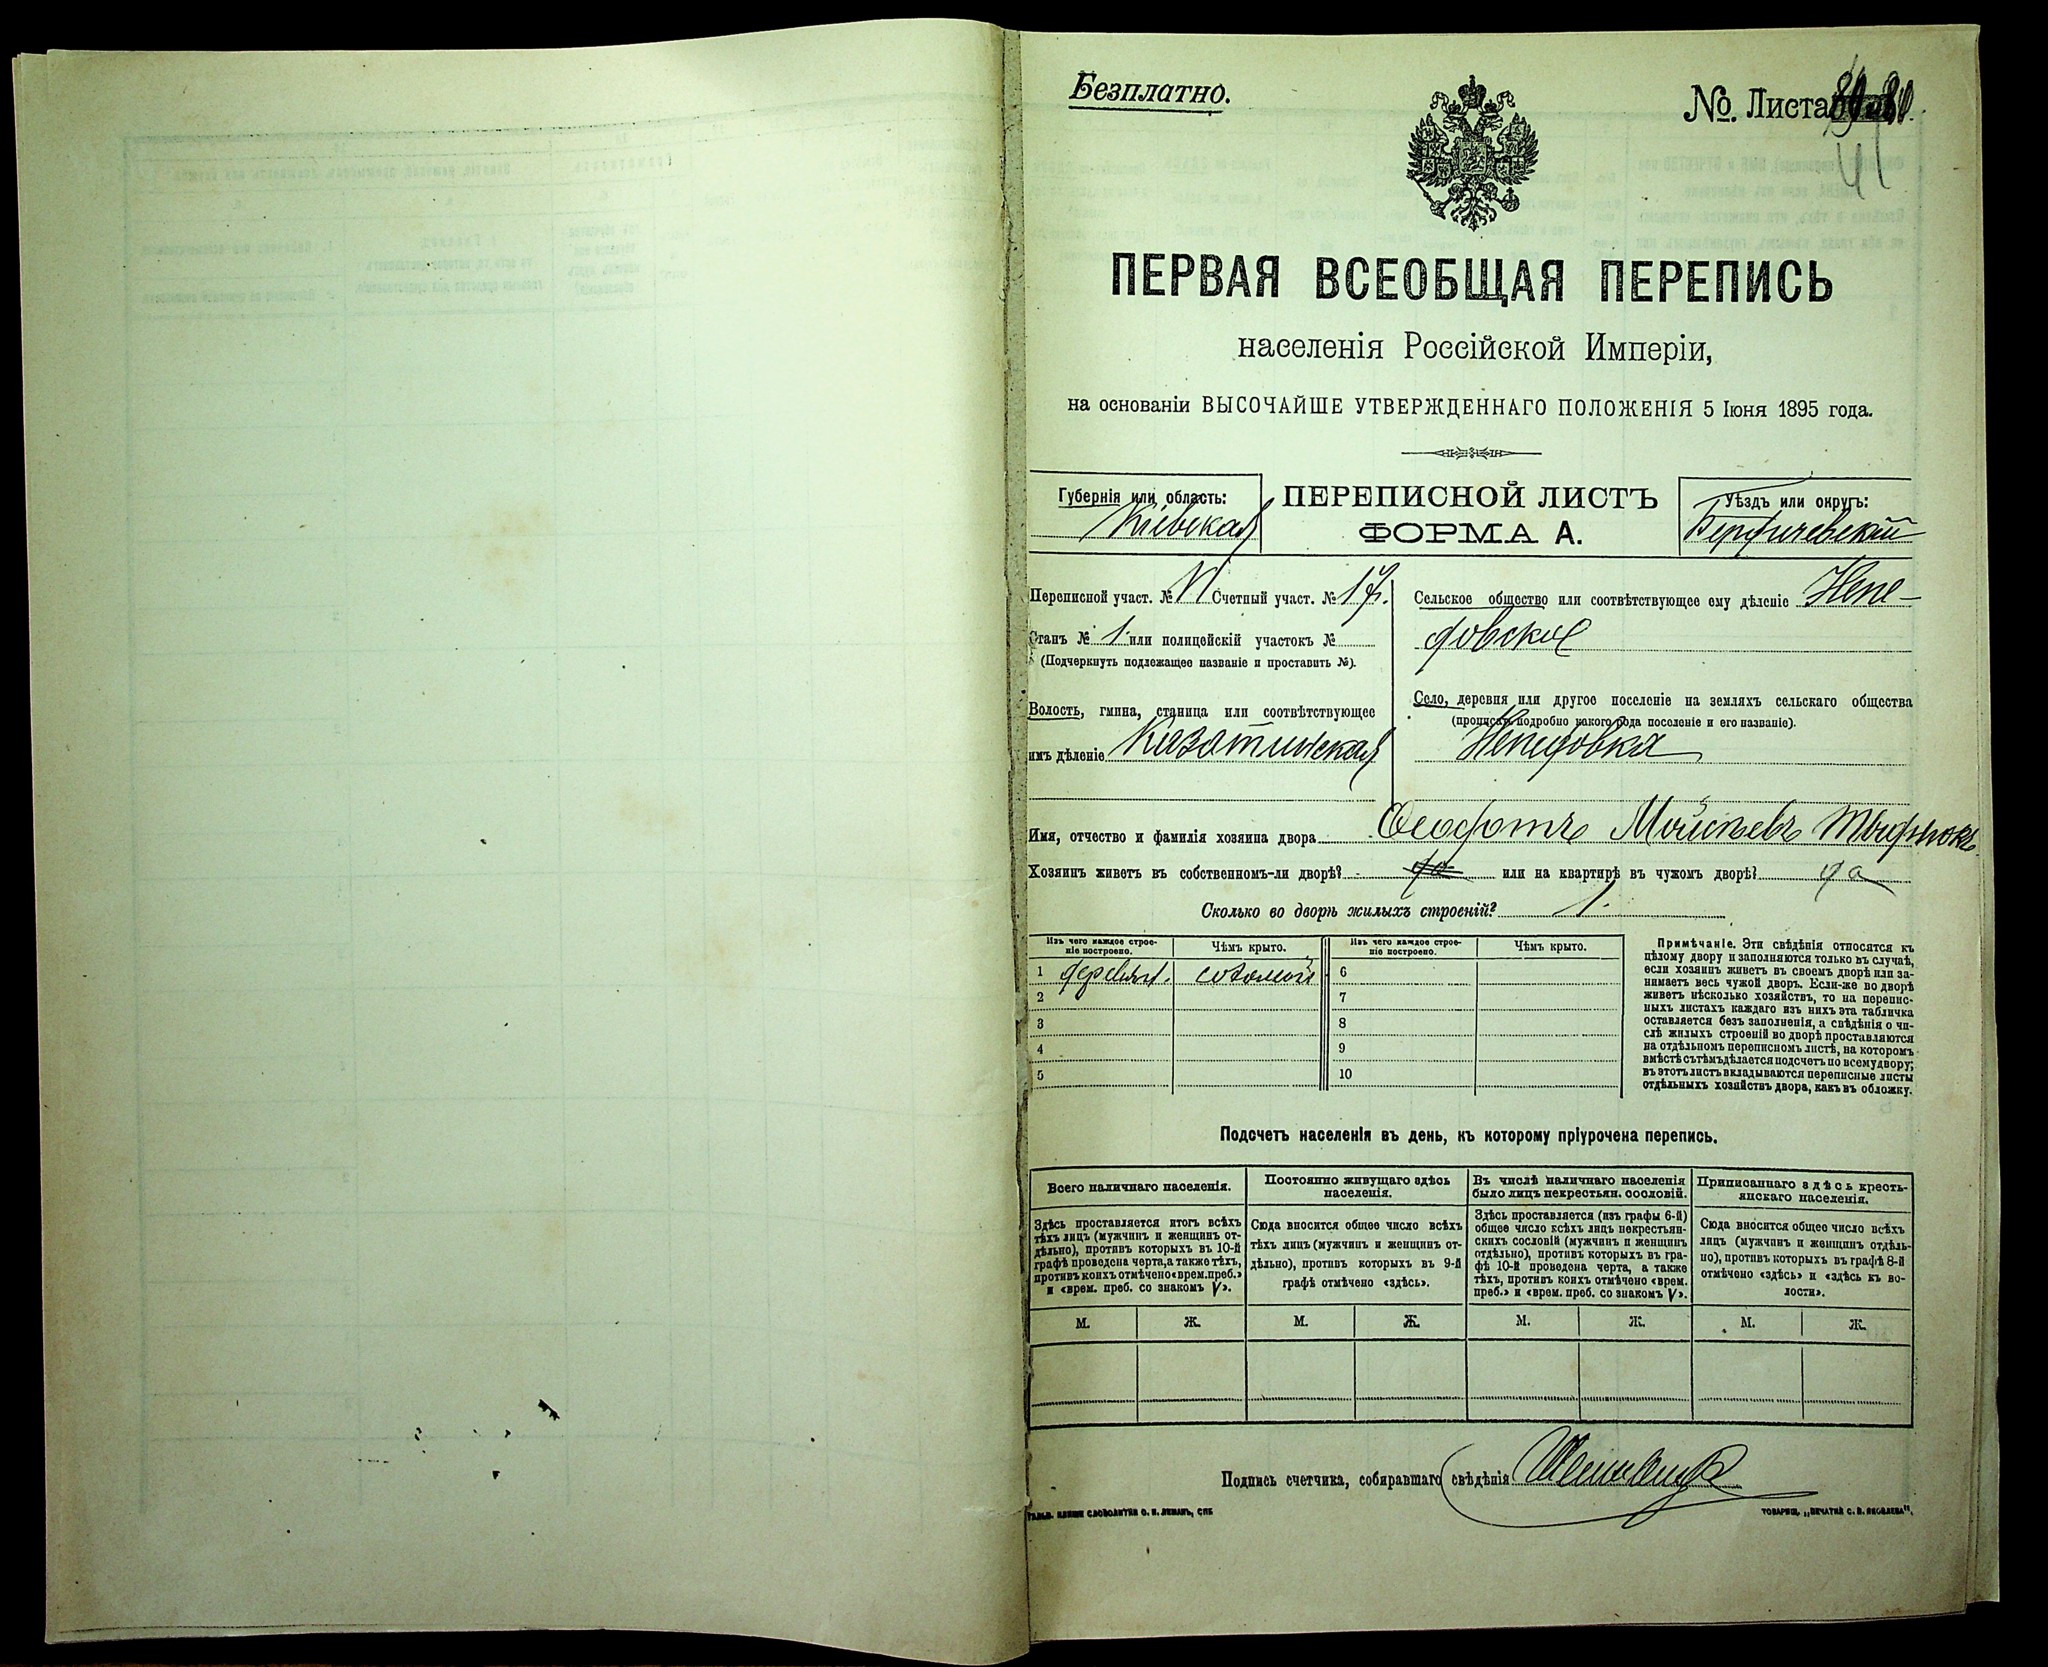 Безплатно.
№. Листа
41
ПЕРВАЯ ВСЕОБЩАЯ ПЕРЕПИСЬ
населенія Россійской Имперіи,
на основаніи ВЫСОЧАЙШЕ УТВЕРЖДЕННАГО ПОЛОЖЕНІЯ 5 Іюня 1895 года.
Губернія или область:
Кіевская
ПЕРЕПИСНОЙ ЛИСТЪ
ФОРМА А.
Уѣздъ или округъ:
Бердичевскій
Переписной участ. № VI Счетный участ. №
Станъ № 1. или полицейскій участокъ №
(Подчеркнуть подлежащее названіе и проставить №).
Волость, гмина, станица или соотвѣтствующее
имъ дѣленіе Казатинская
Сельское общество или соотвѣтствующее ему дѣленіе Непе-
довское
Село, деревня или другое поселеніе на земляхъ сельскаго общества
(прописать подробно какого рода поселеніе и его названіе).
Непедовка
Имя, отчество и фамилія хозяина двора Феодотъ Мойсѣевъ
Хозяинъ живетъ въ собственномъ-ли дворѣ? да или на квартирѣ въ чужомъ дворѣ? да
Сколько во дворѣ жилыхъ строеній? 1.
Изъ чего каждое строе-
ніе построено.
Чѣмъ крыто.
Изъ чего каждое строе-
ніе построено.
Чѣмъ крыто.
1 деревян. соломой 6
2 7
3 8
4 9
5 10
Примѣчаніе. Эти свѣдѣнія относятся къ
цѣлому двору и заполняются только въ случаѣ,
если хозяинъ живетъ въ своемъ дворѣ или за-
нимаетъ весь чужой дворъ. Если-же во дворѣ
живетъ нѣсколько хозяйствъ, то на перепис-
ныхъ листахъ каждаго изъ нихъ эта табличка
оставляется безъ заполненія, а свѣдѣнія о чи-
слѣ жилыхъ строеній во дворѣ проставляются
на отдѣльномъ переписномъ листѣ, на которомъ
вмѣстѣ съ тѣмъ дѣлается подсчетъ по всему двору;
въ этотъ листъ вкладываются переписные листы
отдѣльныхъ хозяйствъ двора, какъ въ обложку.
Подсчетъ населенія въ день, къ которому пріурочена перепись.
Всего наличнаго населенія.
Здѣсь проставляется итогъ всѣхъ
тѣхъ лицъ (мужчинъ и женщинъ от-
дѣльно), противъ которыхъ въ 10-й
графѣ проведена черта, а также тѣхъ,
противъ коихъ отмѣчено «врем. преб.»
и «врем. преб. со знакомъ V».
Постоянно живущаго здѣсь
населенія.
Сюда вносится общее число всѣхъ
тѣхъ лицъ (мужчинъ и женщинъ от-
дѣльно), противъ которыхъ въ 9-й
графѣ отмѣчено «здѣсь».
Въ числѣ наличнаго населенія
было лицъ некрестьян. сословій.
Здѣсь проставляется (изъ графы 6-й)
общее число всѣхъ лицъ некрестьян-
скихъ сословій (мужчинъ и женщинъ
отдѣльно), противъ которыхъ въ гра-
фѣ 10-й проведена черта, а также
тѣхъ, противъ коихъ отмѣчено «врем.
преб.» и «врем. преб. со знакомъ V».
Приписаннаго здѣсь кресть-
янскаго населенія.
Сюда вносится общее число всѣхъ
лицъ (мужчинъ и женщинъ отдѣль-
но), противъ которыхъ въ графѣ 8-й
отмѣчено «здѣсь» и «здѣсь къ во-
лости».
М. Ж. М. Ж. М. Ж. М. Ж.
Подпись счетчика, собиравшаго свѣдѣнія
ГАЛЬВ. КЛИШИ СЛОВОЛИТНИ О. И. ЛЕМАНЪ, СПБ
ТОВАРИЩ. „ПЕЧАТНЯ С. П. ЯКОВЛЕВА".